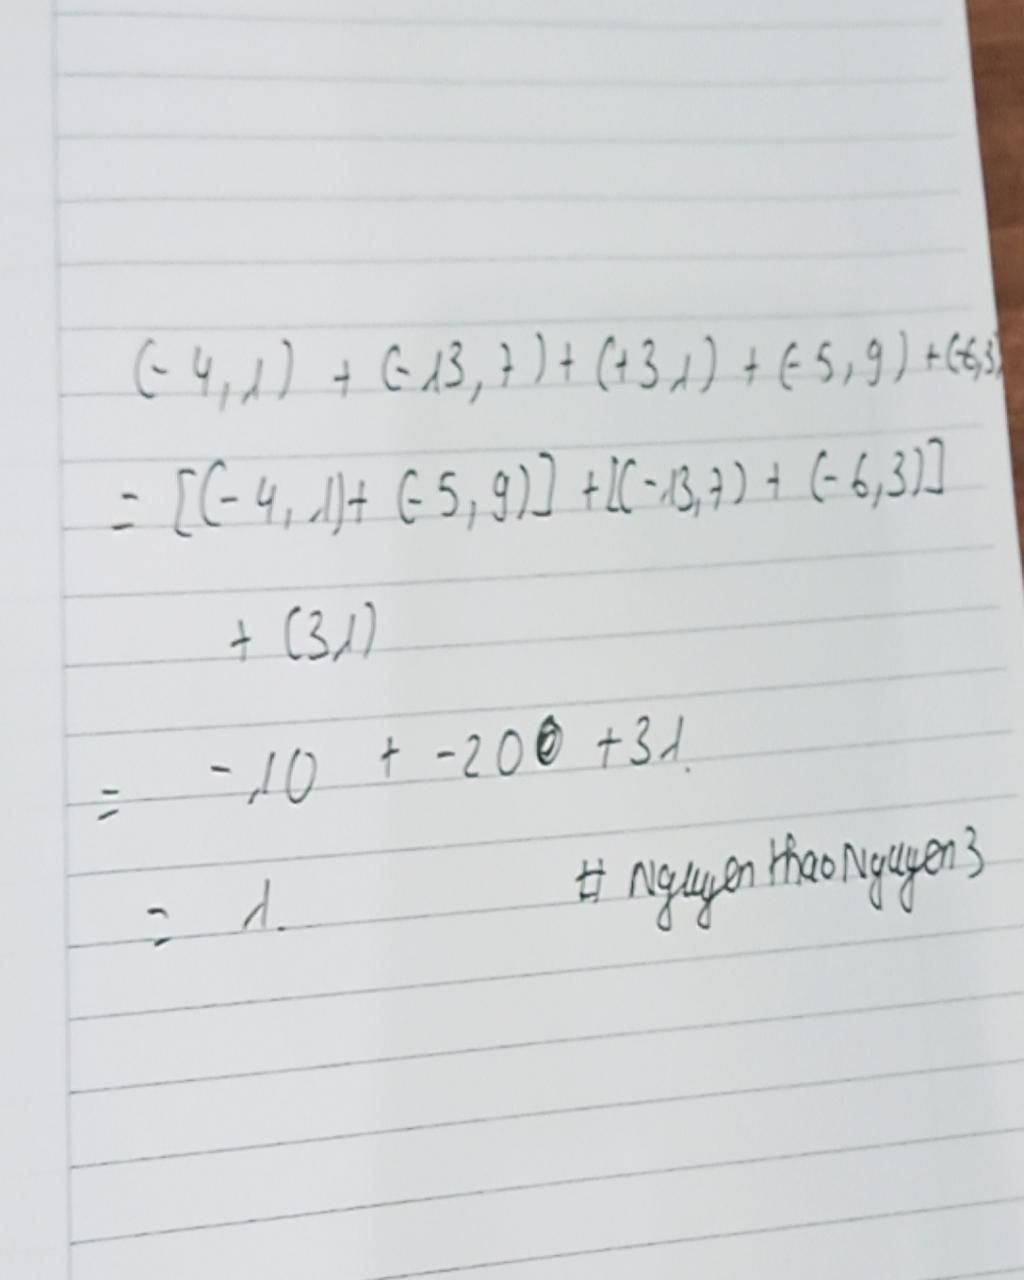 (-4,1) + (-13,7) + (+31) + (-5,9) + (-6,3)
= [(-4,1)+ (-5,9)] + [(-13,7) + (-6,3)]
+ (31)
= -10 + -20 +31.
= 1.
# NguyenThaoNguyen3